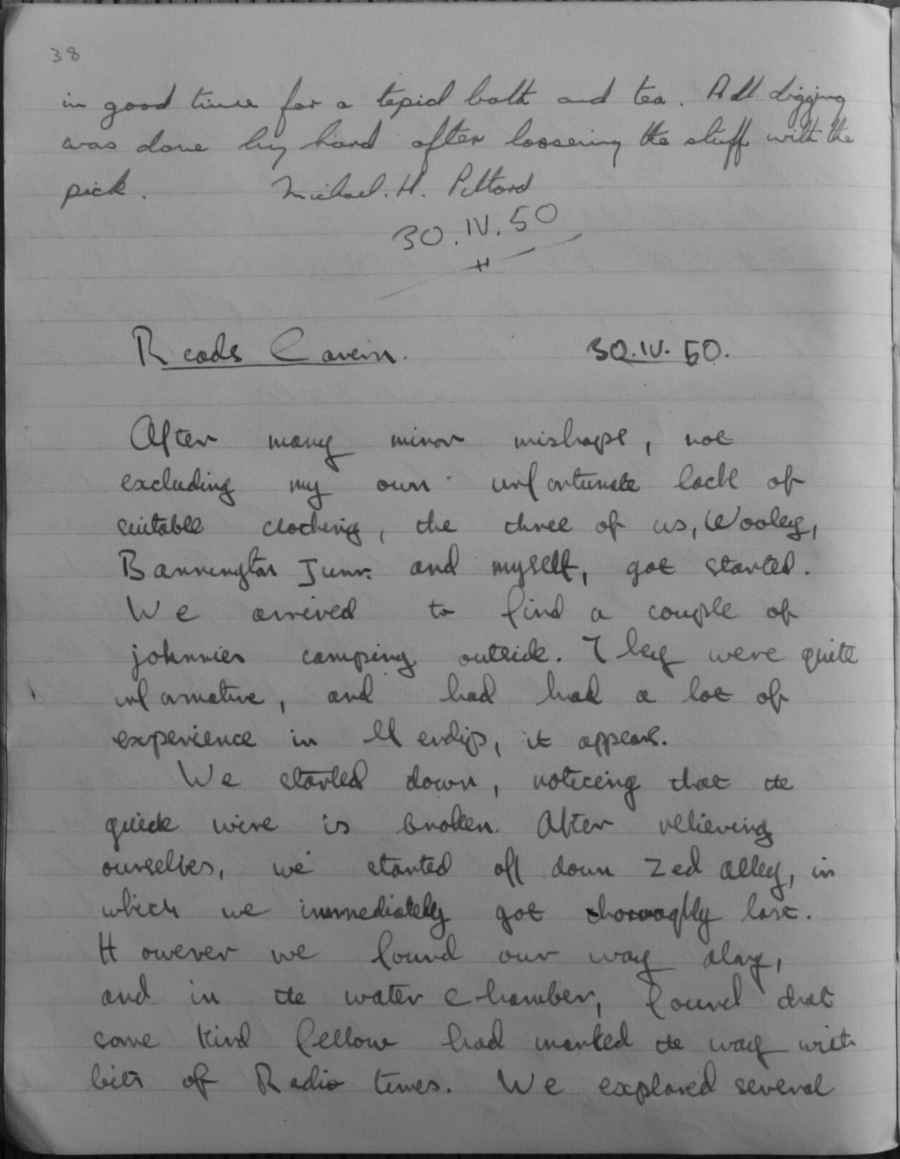 38
in good time for a tepid bath and tea. All digging
was done by hand after loosening the stuff with the
pick. Michael. H. Pittard
30.IV.50
Reads Cavern. 30.IV.50.
After many minor mishaps, not
excluding my own unfortunate lack of
suitable clothing, the three of us, Wooley,
Bannington Junr. and myself, got started.
We arrived to find a couple of
johnnies camping outside. They were quite
informative, and had had a lot of
experience in Mendip, it appears.
We started down, noticing that the
guide wire is broken. After relieving
ourselves, we started off down Zed Alley, in
which we immediately got thoroughly lost.
However we found our way along,
and in the water chamber, found that
some kind fellow had marked the way with
bits of Radio times. We explored several